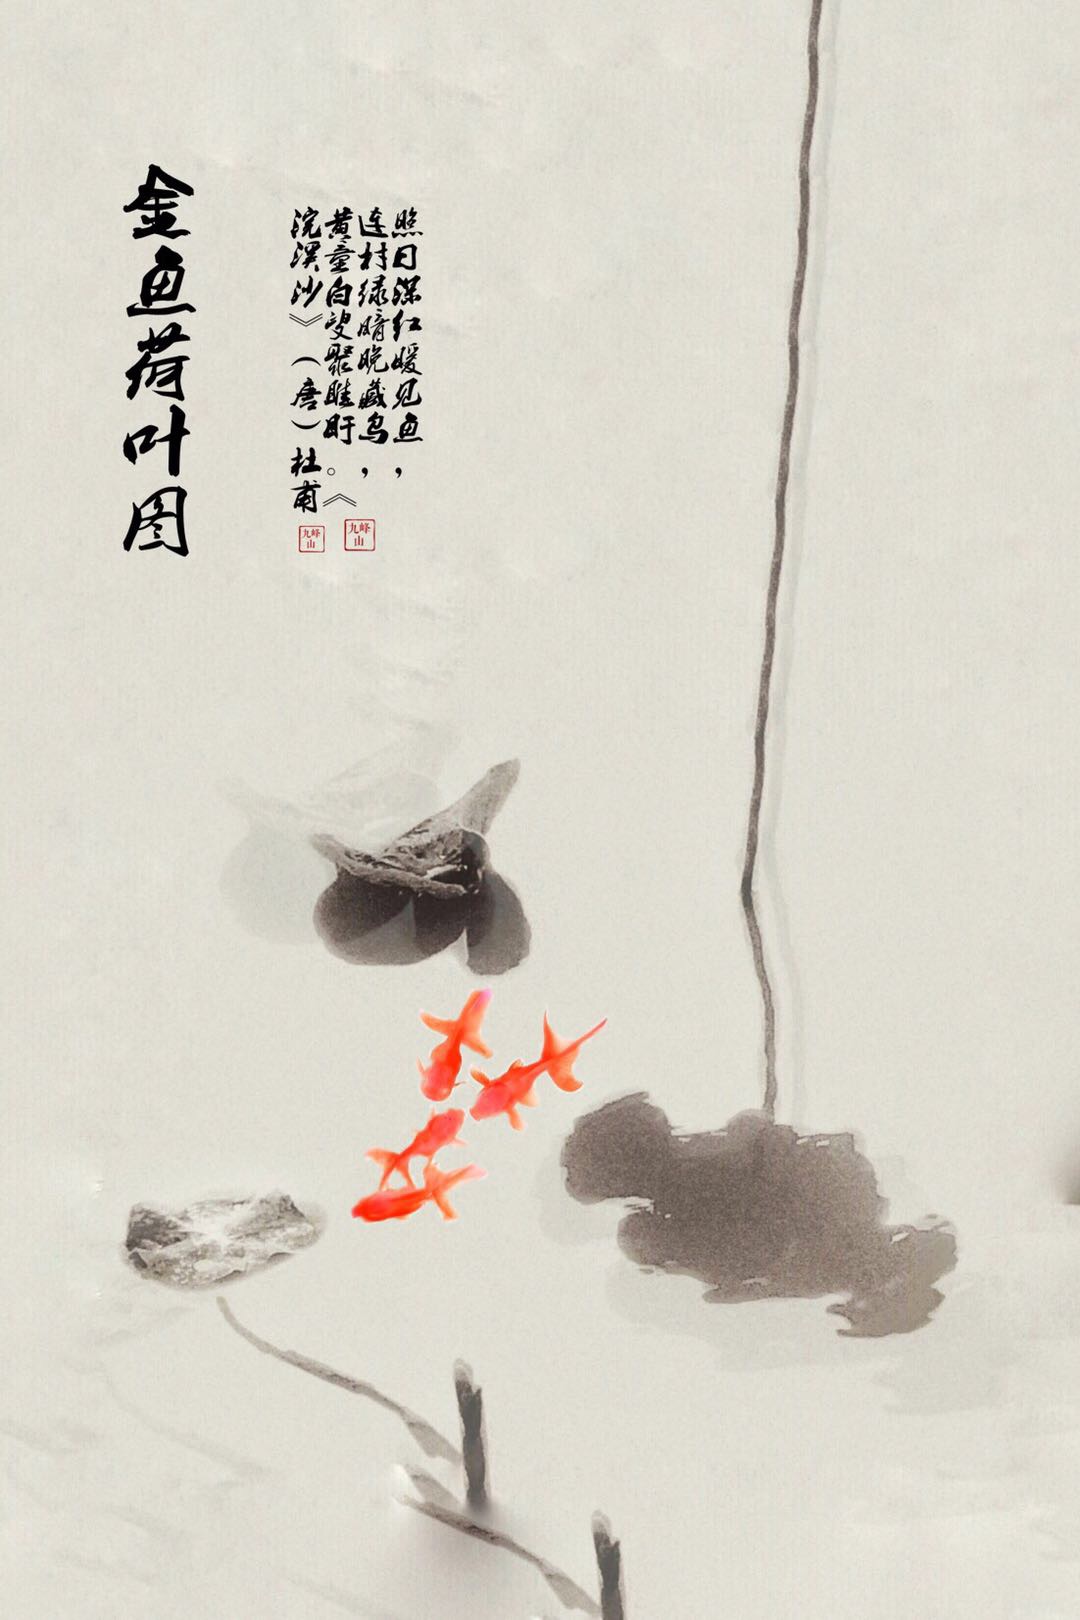 金鱼荷叶图
照日深红暖见鱼，
连村绿暗晚藏乌，
黄童白叟聚睢盱。《
浣溪沙》（唐）杜甫
九峰山
九峰山